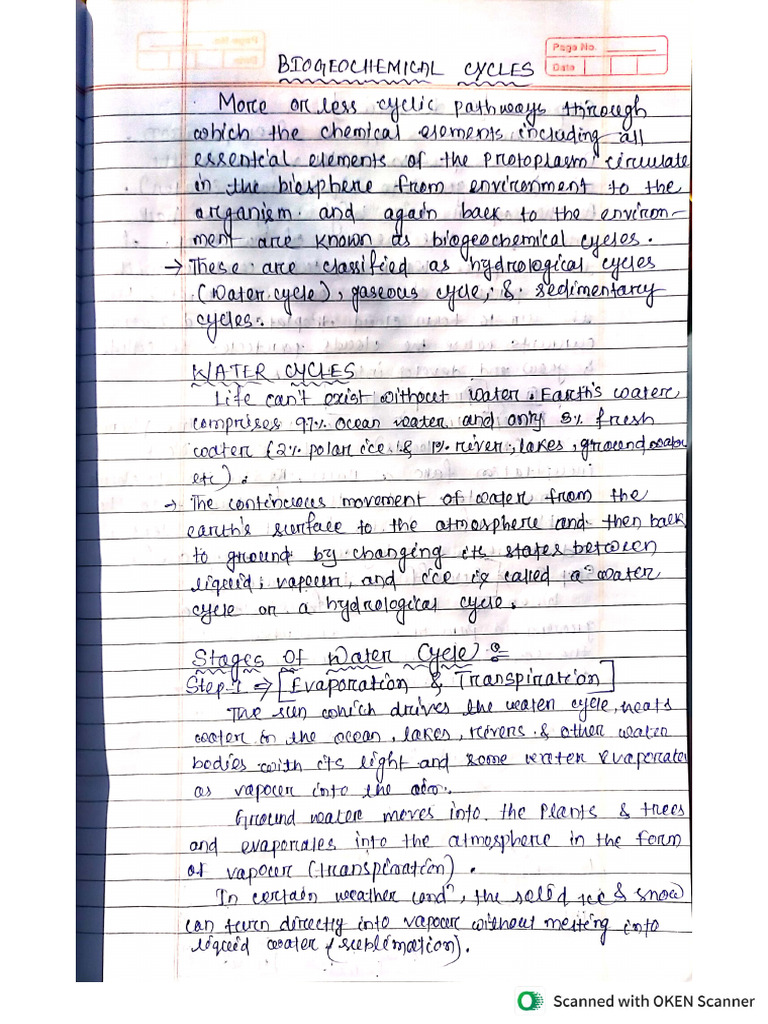 BIOGEOCHEMICAL CYCLES
Page No.
Date
More or less cyclic pathways through
which the chemical elements including all
essential elements of the protoplasm circulate
in the biosphere from environment to the
organism and again back to the environ-
ment are known as biogeochemical cycles.
→ These are classified as hydrological cycles
(Water cycle), gaseous cycle, & sedimentary
cycles.
WATER CYCLES
Life can't exist without water. Earth's water
comprises 97% ocean water and only 3% fresh
water (2% polar ice & 1% river, lakes, ground water
etc).
→ The continuous movement of water from the
earth's surface to the atmosphere and then back
to ground by changing its states between
liquid, vapour, and ice is called a water
cycle or a hydrological cycle.
Stages Of Water Cycle :-
Step-1 ⇒ [Evaporation & Transpiration]
The sun which drives the water cycle, heats
water in the ocean, lakes, rivers & other water
bodies with its light and some water evaporates
as vapour into the air.
Ground water moves into the plants & trees
and evaporates into the atmosphere in the form
of vapour (transpiration).
In certain weather condⁿ, the solid ice & snow
can turn directly into vapour without melting into
liquid water (sublimation).
Scanned with OKEN Scanner